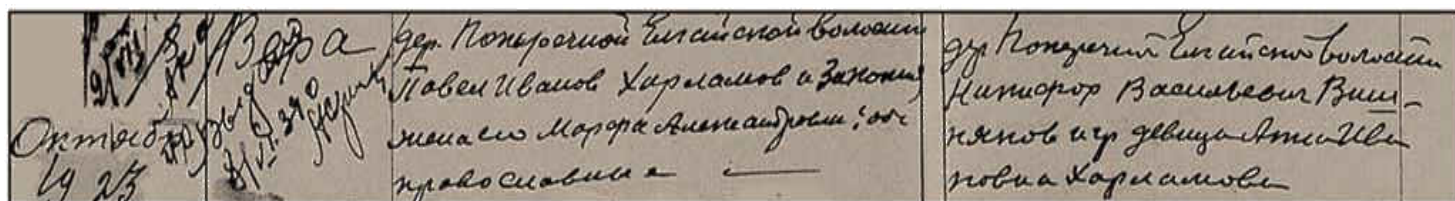 Вера
Октябр
19 23
дер. Поперечной Елгайской волости
Павел Иванов Харламов и Законная
жена его Марфа Александровна; обе
православные
дер. Поперечной Елгайской волости
Никифор Васильевич Виш-
няков и гр девица Анна Ива
новна Харламова